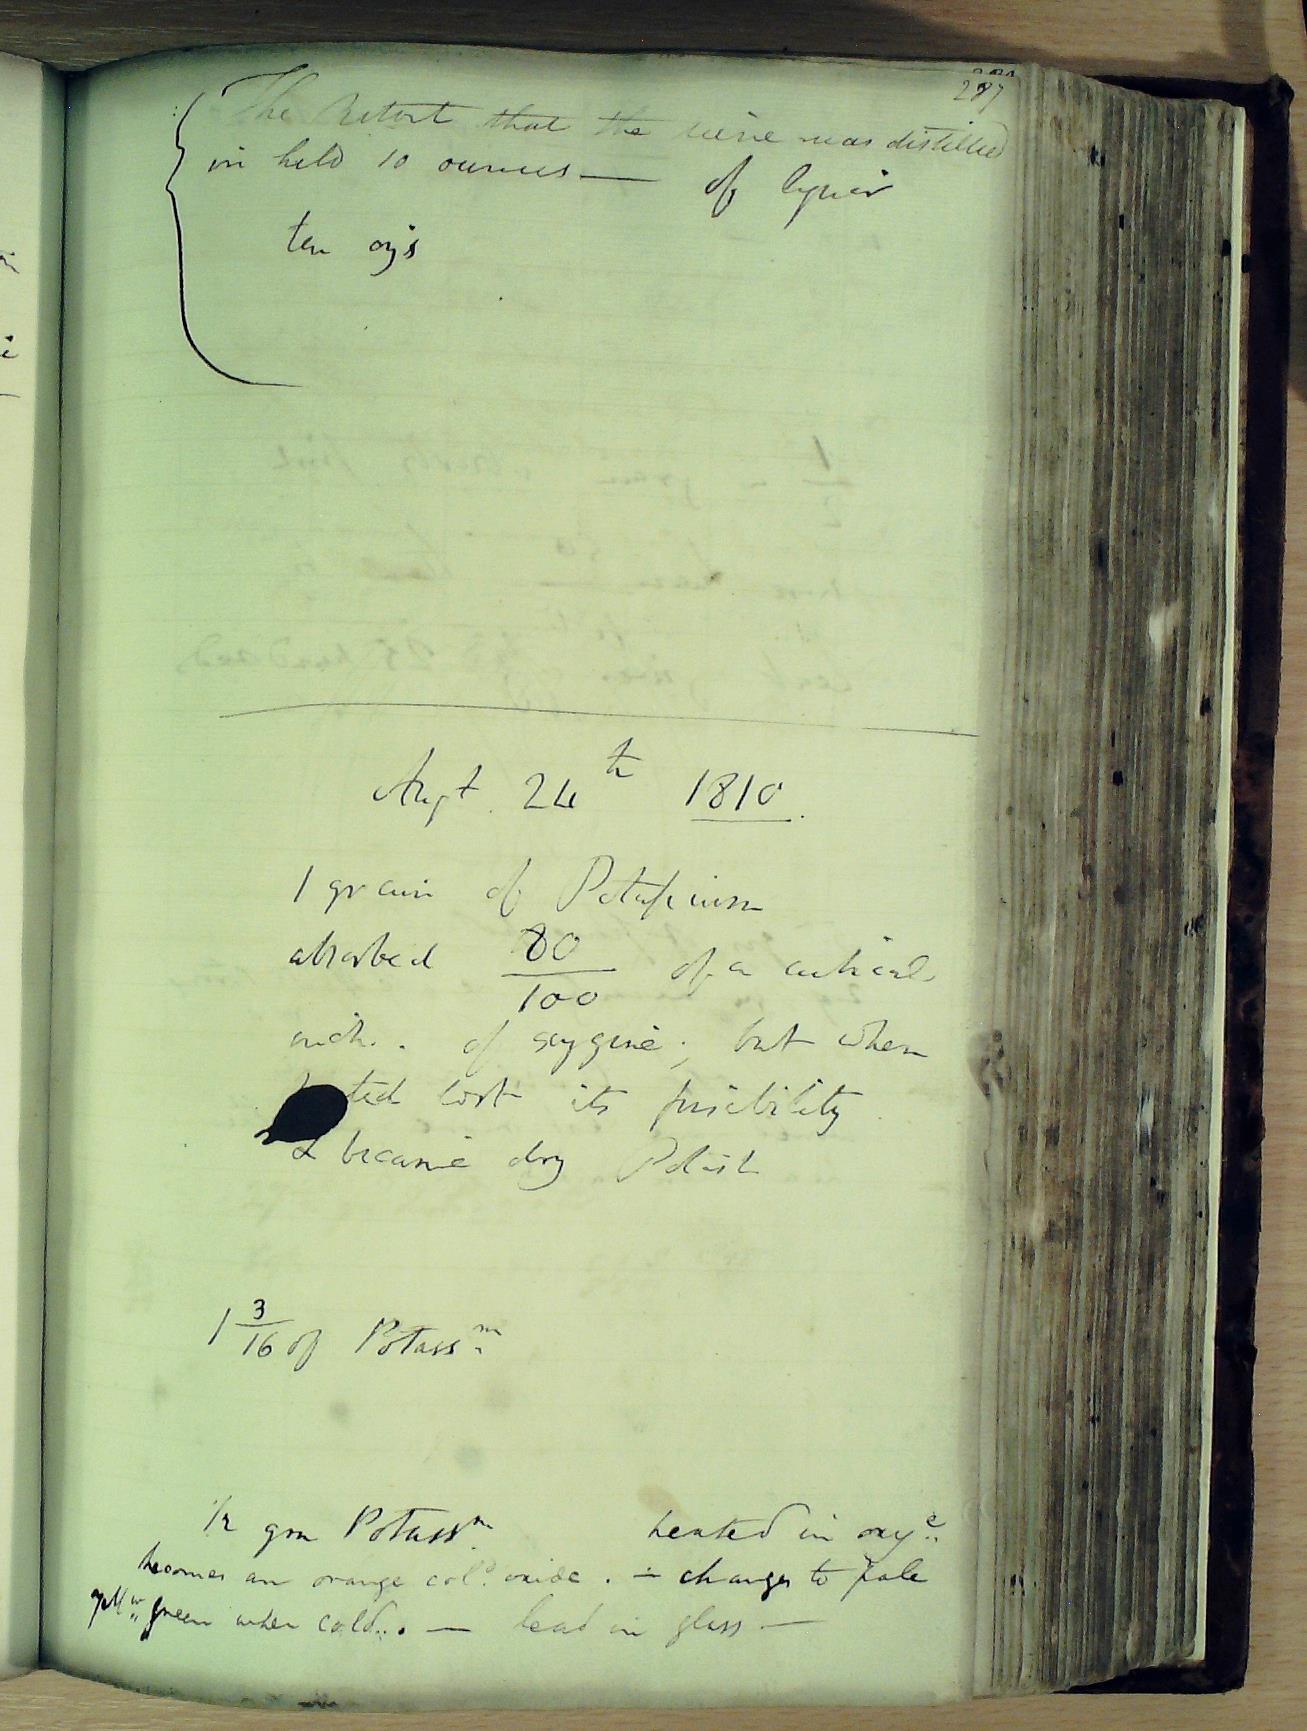 287
The Retort that the wine was distilled
in held 10 ounces — of liquor
ten oz's
Augt. 24th 1810.
1 grain of Potassium
absorbed 80/100 of a cubical
inch. of oxygene; but when
ted lost its fusibility
& became dry Potash
1 3/16 of Potassm
1/2 grn Potassm heated in oxye
becomes an orange cold. oxide. — changes to pale
yellw green when cold.. — lead in glass —